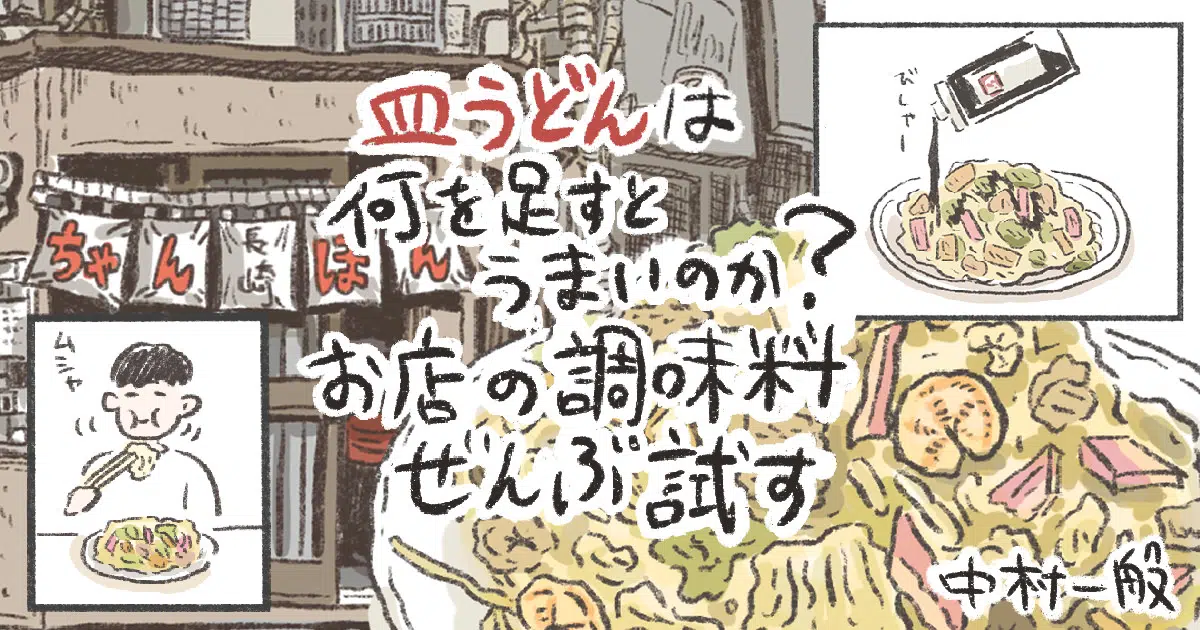 皿うどんは
何を足すと
うまいのか?
お店の調味料
ぜんぶ試す
中村一般
ちゃん長崎ぽん
ムシャ
びしゃー